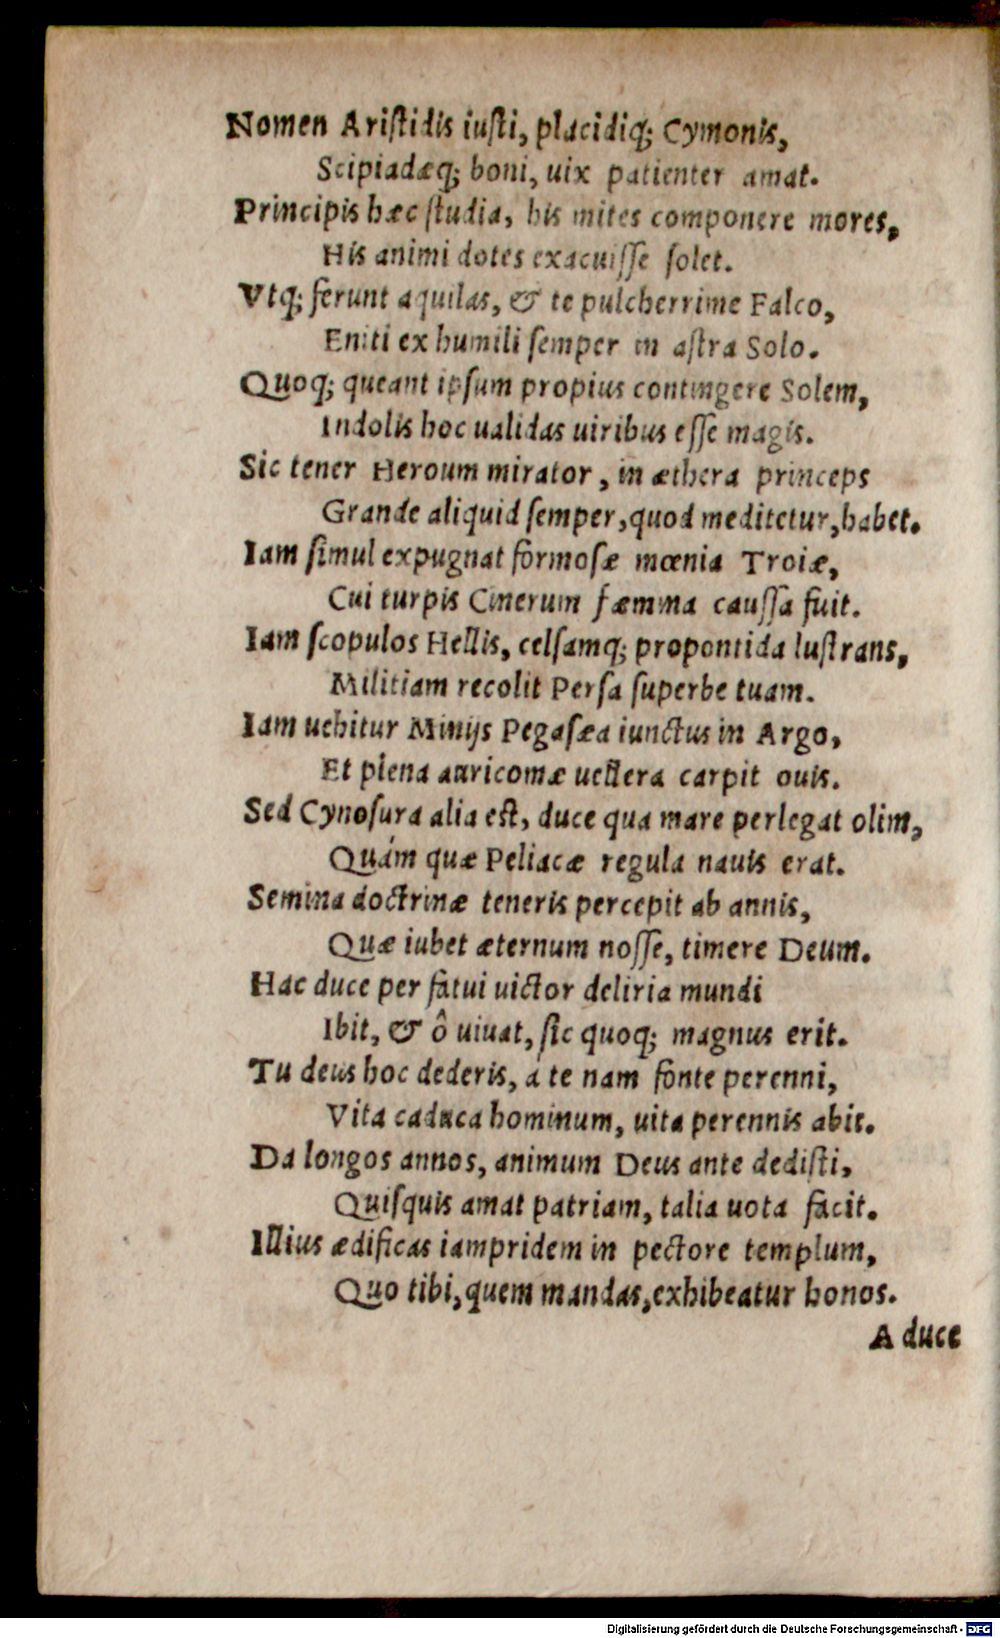 Nomen Ariſtidis iuſti, placidiq; Cymonis,
Scipiadæq; boni, uix patienter amat.
Principis hæc ſtudia, his mites componere mores,
His animi dotes exacuiſſe ſolet.
Vtq; ferunt aquilas, & te pulcherrime Falco,
Eniti ex humili ſemper in aſtra Solo.
Quoq; queant ipſum propius contingere Solem,
Indolis hoc ualidas uiribus eſſe magis.
Sic tener Heroum mirator, in æthera princeps
Grande aliquid ſemper, quod meditetur, habet.
Iam ſimul expugnat formoſæ mœnia Troiæ,
Cui turpis Cinerum fæmina cauſſa fuit.
Iam ſcopulos Hellis, celſamq; propontida luſtrans,
Militiam recolit Perſa ſuperbe tuam.
Iam uehitur Minijs Pegaſæa iunctus in Argo,
Et plena auricomæ uellera carpit ouis.
Sed Cynoſura alia eſt, duce qua mare perlegat olim,
Quám quæ Peliacæ regula nauis erat.
Semina doctrinæ teneris percepit ab annis,
Quæ iubet æternum noſſe, timere Deum.
Hac duce per fatui uictor deliria mundi
Ibit, & ô uiuat, ſic quoq; magnus erit.
Tu deus hoc dederis, a te nam fonte perenni,
Vita caduca hominum, uita perennis abit.
Da longos annos, animum Deus ante dediſti,
Quiſquis amat patriam, talia uota facit.
Illius ædificas iampridem in pectore templum,
Quo tibi, quem mandas, exhibeatur honos.
A duce
Digitalisierung gefördert durch die Deutsche Forschungsgemeinschaft - DFG